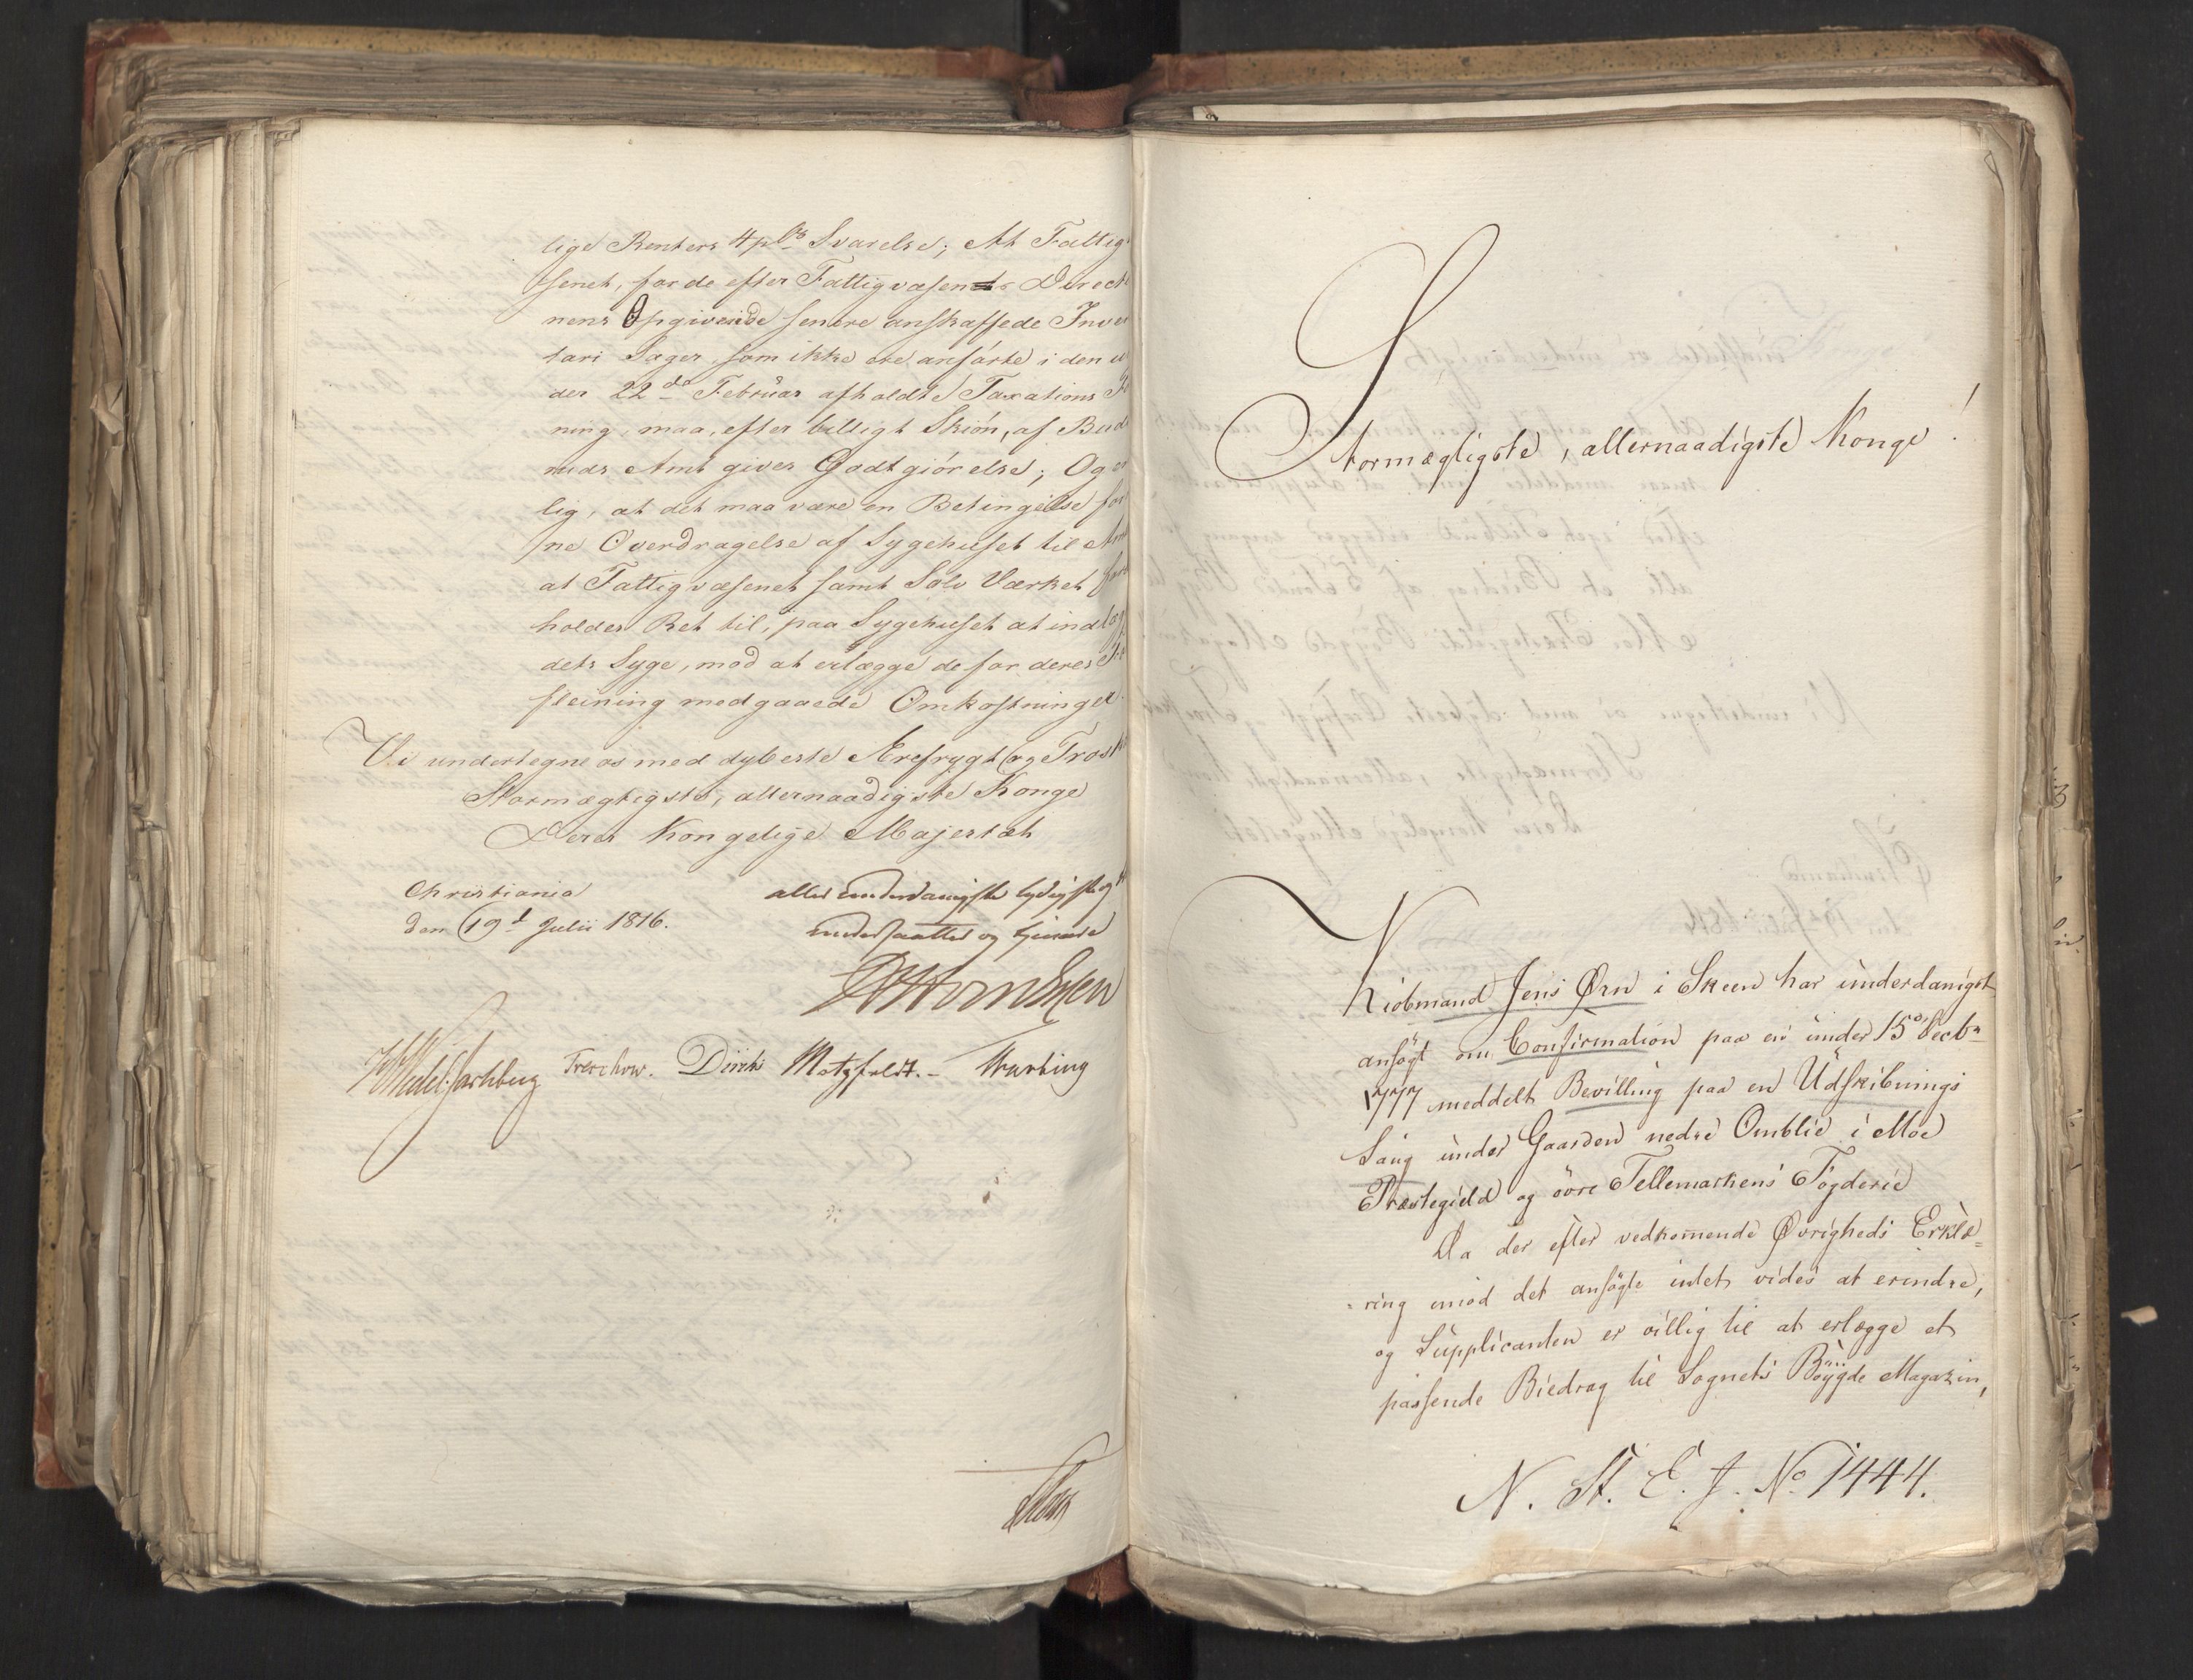 lige Renters 4 pCts Svarelse; At Fattig
senet, for de efter Fattigvæsenets Direct
nens Opgivende senere anskaffede Inven
tari Sager, som ikke ere anførte i den u
der 22de Februar afholdte Taxations F
ning, maa, efter billigt Skiön, af Bud
neruds Amt gives Godtgiörelse; Og e
lig, at det maa være en Betingelse for
ne Overdragelse af Sygehuset til Amt
at Fattigvæsenet samt Sölv Værket for
holder Ret til, paa Sygehuset at indlæg
dets Syge, mod at erlægge de for deres F
pleining medgaaede Omkostninger.
Vi undertegne os med dybeste Ærefrygt og Trosk
Stormægtigste, allernaadigste Konge
Deres Kongelige Majestæt
Christiania
den 19d Julii 1816.
allerunderdanigste lydigste og
undersaatter og tjenere
Treschow. Diriks Motzfeldt. -
Stormægtigste, allernaadigste Konge!
Kiöbmand Jens Ørn i Skeen har underdanigst
ansögt om Confirmation paa en under 15de Decbr
1777 meddelt Bevilling paa en Udskibnings
Saug under Gaarden nedre Omblie i Moe
Præstegield og övre Tellemarkens Fogderie
Da der efter vedkommende Øvrigheds Erklæ=
=ring imod det ansögte intet vides at erindre,
og Supplicanten er villig til at erlægge et
passende Biedrag til Sognets Böygde Magazin,
N. St. E. J. No 1444.